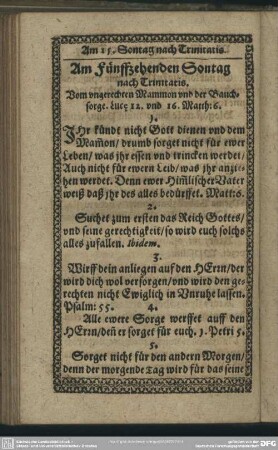 Am 15. Sontag nach Trinitatis.
Am Fünffzehenden Sontag
nach Trinitatis,
Vom vngerechten Mammon vnd der Bauch-
sorge. Lucę 12. vnd 16. Matth: 6.
1.
IHr kündt nicht Gott dienen vnd dem
Mam̃on/ drumb sorget nicht für ewer
Leben/ was jhr essen vnd trincken werdet/
Auch nicht für ewern Leib/ was jhr anzie-
hen werdet. Denn ewer Him̃lischer Vater
weiß daß jhr des alles bedürffet. Matt. 6.
2.
Suchet zum ersten das Reich Gottes/
vnd seine gerechtigkeit/ so wird euch solchs
alles zufallen. Ibidem.
3.
Wirff dein anliegen auf den HErrn/ der
wird dich wol versorgen/ vnd wird den ge-
rechten nicht Ewiglich in Vnruhe lassen.
Psalm: 55.
4.
Alle ewere Sorge werffet auff den
HErrn/ deñ er sorget für euch. 1. Petri 5.
5.
Sorget nicht für den andern Morgen/
denn der morgende Tag wird für das seine